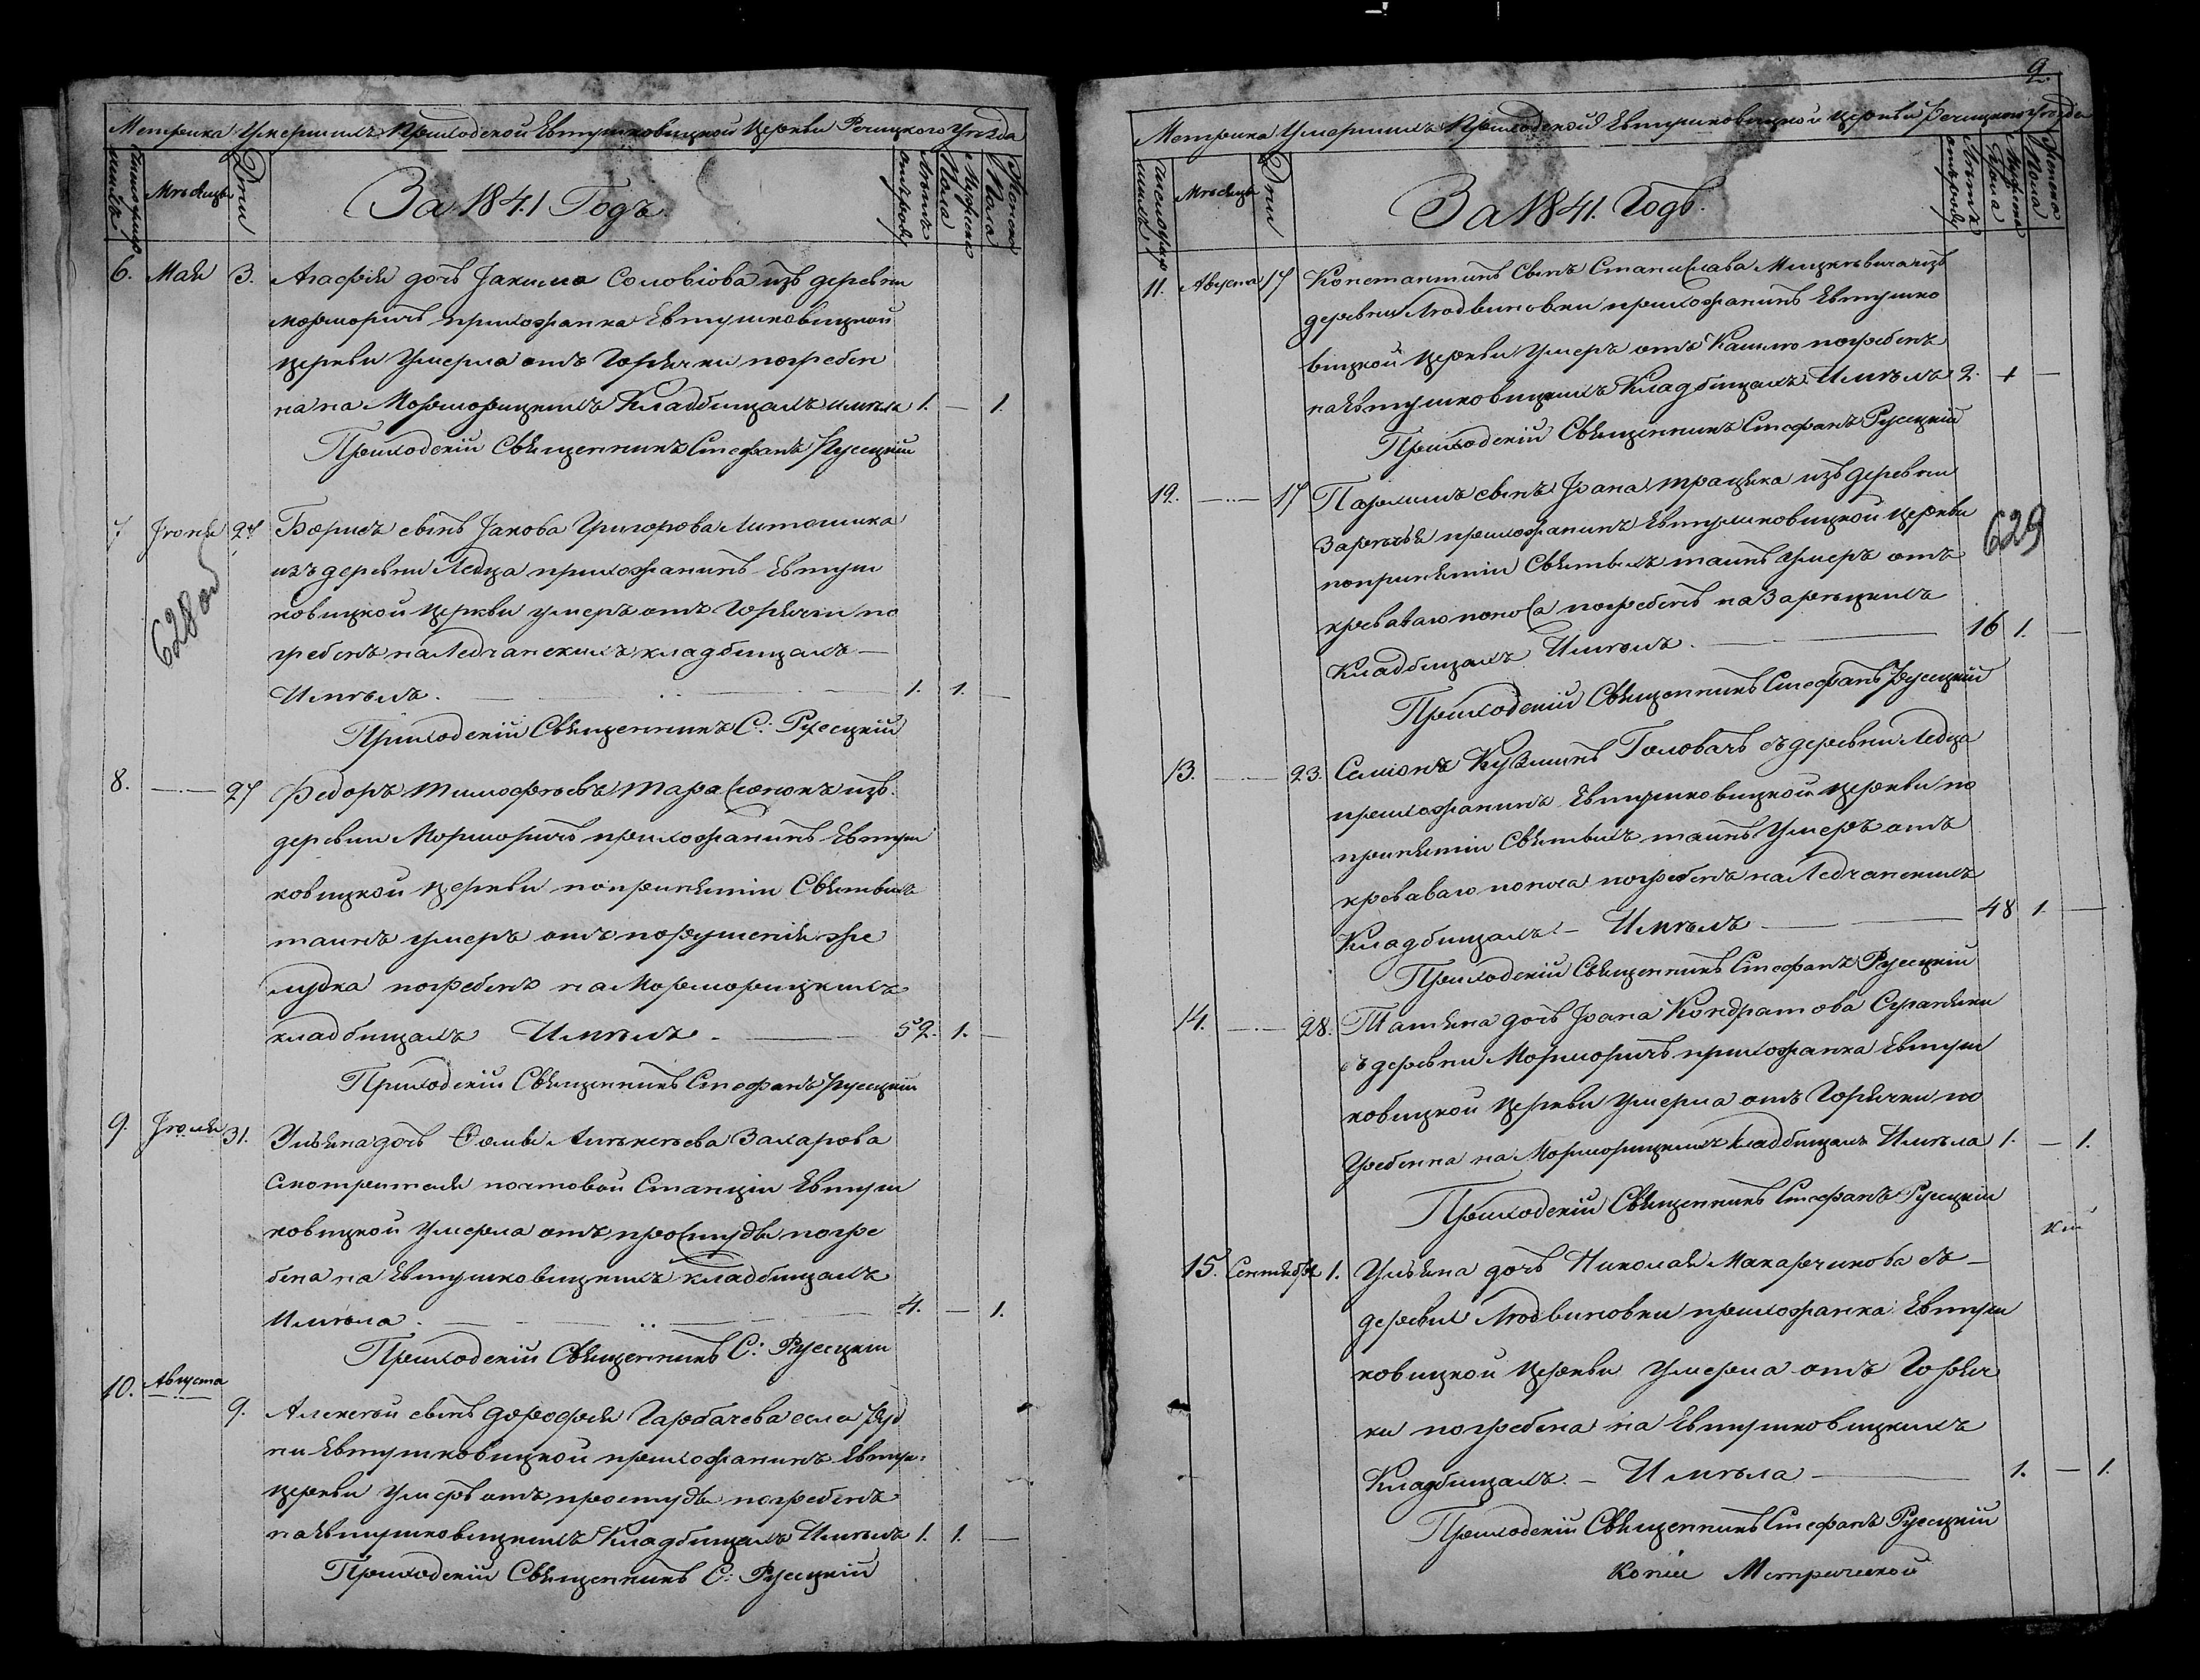 Метрика Умершихъ Приходской Евтушковицкой Церкви Речицкого Уѣзда
число умершихъ
Мѣсяцъ
Дни
За 1841 Годъ
Лѣтъ отъ роду
Мужеска Пола
Женска Пола
6. Маія 3. Агафія дочь Іакима Соловіова изъ деревни
Морморичъ прихожанка Евтушковицкой
Церкви Умерла отъ Горячки погребен
на на Морморицкихъ Кладбищахъ имѣла 1. — 1.
Приходскій Священникъ Стефанъ Русецкій
7 Іюня 27 Борисъ сынъ Іакова Григорова Литошика
изъ деревни Ледца прихожанинъ Евтуш
628 об
ковицкой Церкви умеръ отъ Горячки по
гребенъ на Ледчанскихъ кладбищахъ —
Имѣлъ. 1. 1. —
Приходскій Священникъ С: Русецкій
8. — 27 Федоръ Тимофѣевъ Тарасюкъ изъ
деревни Морморичъ прихожанинъ Евтуш
ковицкой Церкви по принятіи Святыхъ
таинъ умеръ отъ порушенія же
лудка погребенъ на Морморицкихъ
кладбищахъ Имѣлъ. 52. 1. —
Приходскій Священникъ Стефанъ Русецкій
9. Іюля 31. Ульяна дочь Фомы Алѣксѣева Захарова
Смотрителя почтовой Станціи Евтуш
ковицкой Умерла отъ простуды погре
бена на Евтушковицкихъ кладбищахъ
Имѣла. 4. — 1.
Приходскій Священникъ С: Русецкій
10. Августа 9. Алексѣй сынъ Дорофея Гарбачева села
Евтушковицкой прихожанинъ Евтуш:
Церкви Умеръ отъ простуды погребенъ
на Евтушковицкихъ Кладбищахъ Имѣлъ 1. 1. —
Приходскій Священникъ С: Русецкій
9.
Метрика Умершихъ Приходской Евтушковицкой Церкви Речицкого Уѣзда
число умершихъ
Мѣсяцъ
Дни
За 1841. Годъ.
Лѣтъ отъ роду
Мужеска Пола
Женска Пола
11. Августа 17 Константинъ Сынъ Станислава Мицкѣвича изъ
деревни Людвиновки прихожанинъ Евтушко
вицкой Церкви Умеръ отъ Кашлю погребенъ
на Евтушковицкихъ Кладбищахъ Имѣлъ 2. 1 —
Приходскій Священникъ Стефанъ Русецкій
12. — 17 Пархимъ сынъ Іоана Трацека изъ деревни
Зарѣчья прихожанинъ Евтушковицкой Церкви
629
по принятіи Святыхъ таинъ Умеръ отъ
кроваваго поноса погребенъ на Зарѣцкихъ
Кладбищахъ Имѣлъ. 16 1. —
Приходскій Священникъ Стефанъ Русецкій
13. — 23. Семіонъ Кузминъ Головачъ съ деревни Ледца
прихожанинъ Евтушковицкой Церкви по
принятіи Святыхъ таинъ Умеръ отъ
кроваваго поноса погребенъ на Ледчанскихъ
Кладбищахъ — Имѣлъ 48 1. —
Приходскій Священникъ Стефанъ Русецкій
14. — 28. Татіяна дочь Іоана Кондратова
съ деревни Морморичъ прихожанка Евтуш
ковицкой Церкви Умерла отъ Горячки по
гребенна на Морморицкихъ кладбищахъ Имѣла 1. — 1.
Приходскій Священникъ Стефанъ Русецкій
кій
15. Сентября 1. Ульяна дочь Николая Макарчикова съ —
деревни Людвиновки прихожанка Евтуш
ковицкой Церкви Умерла отъ Горяч
ки погребена на Евтушковицкихъ
Кладбищахъ. — Имѣла 1. — 1.
Приходскій Священникъ Стефанъ Русецкій
Копіи Метрической